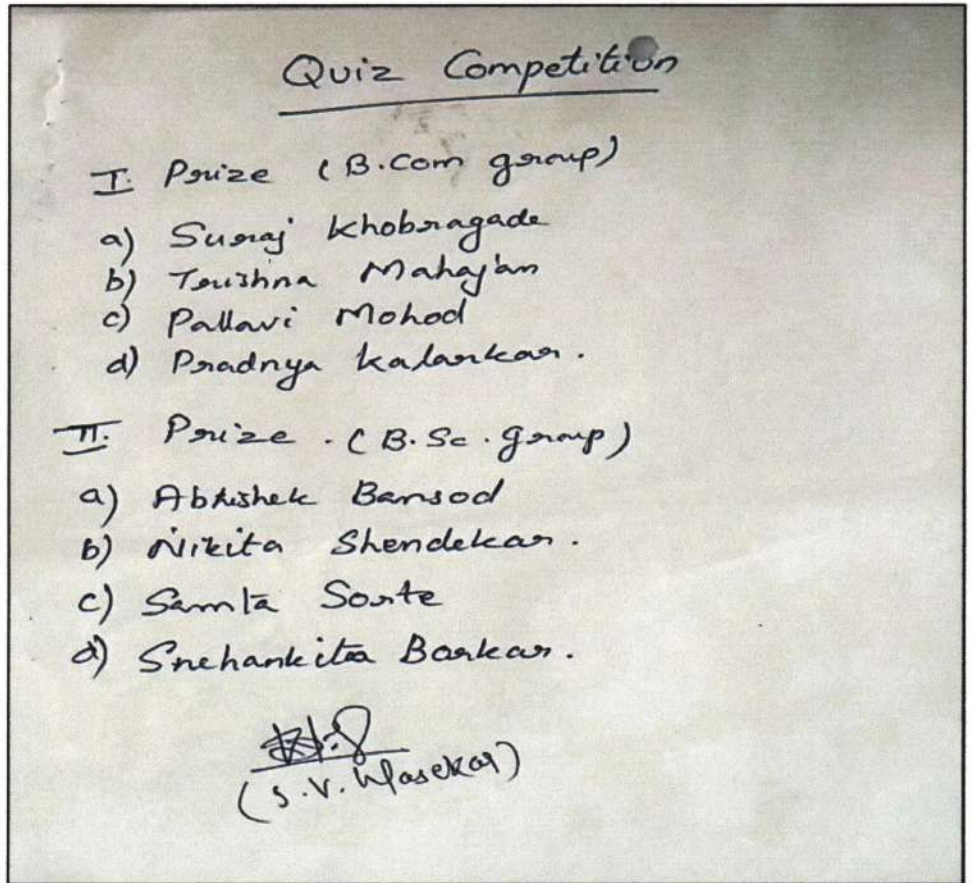 Quiz Competition
I. Prize (B.Com group)
a) Suraj Khobragade
b) Trushna Mahajan
c) Pallavi Mohod
d) Pradnya Kalarkar.
II. Prize . (B.Sc. group)
a) Abhishek Bansod
b) Nikita Shendekar.
c) Samta Sorte
d) Snehankita Barkar.
(S.V.